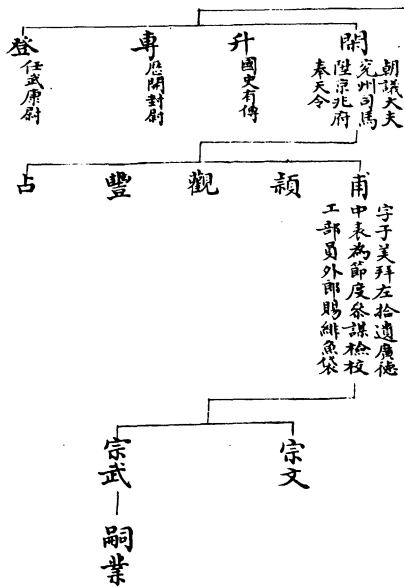 閑
朝議大夫
兗州司馬
陞京兆府
奉天令
升
國史有傳
專
歷開封尉
登
任武康尉
甫
字子美拜左拾遺廣德
中表為節度叅謀檢校
工部員外郎賜緋魚袋
穎
觀
豐
占
宗文
宗武
嗣業